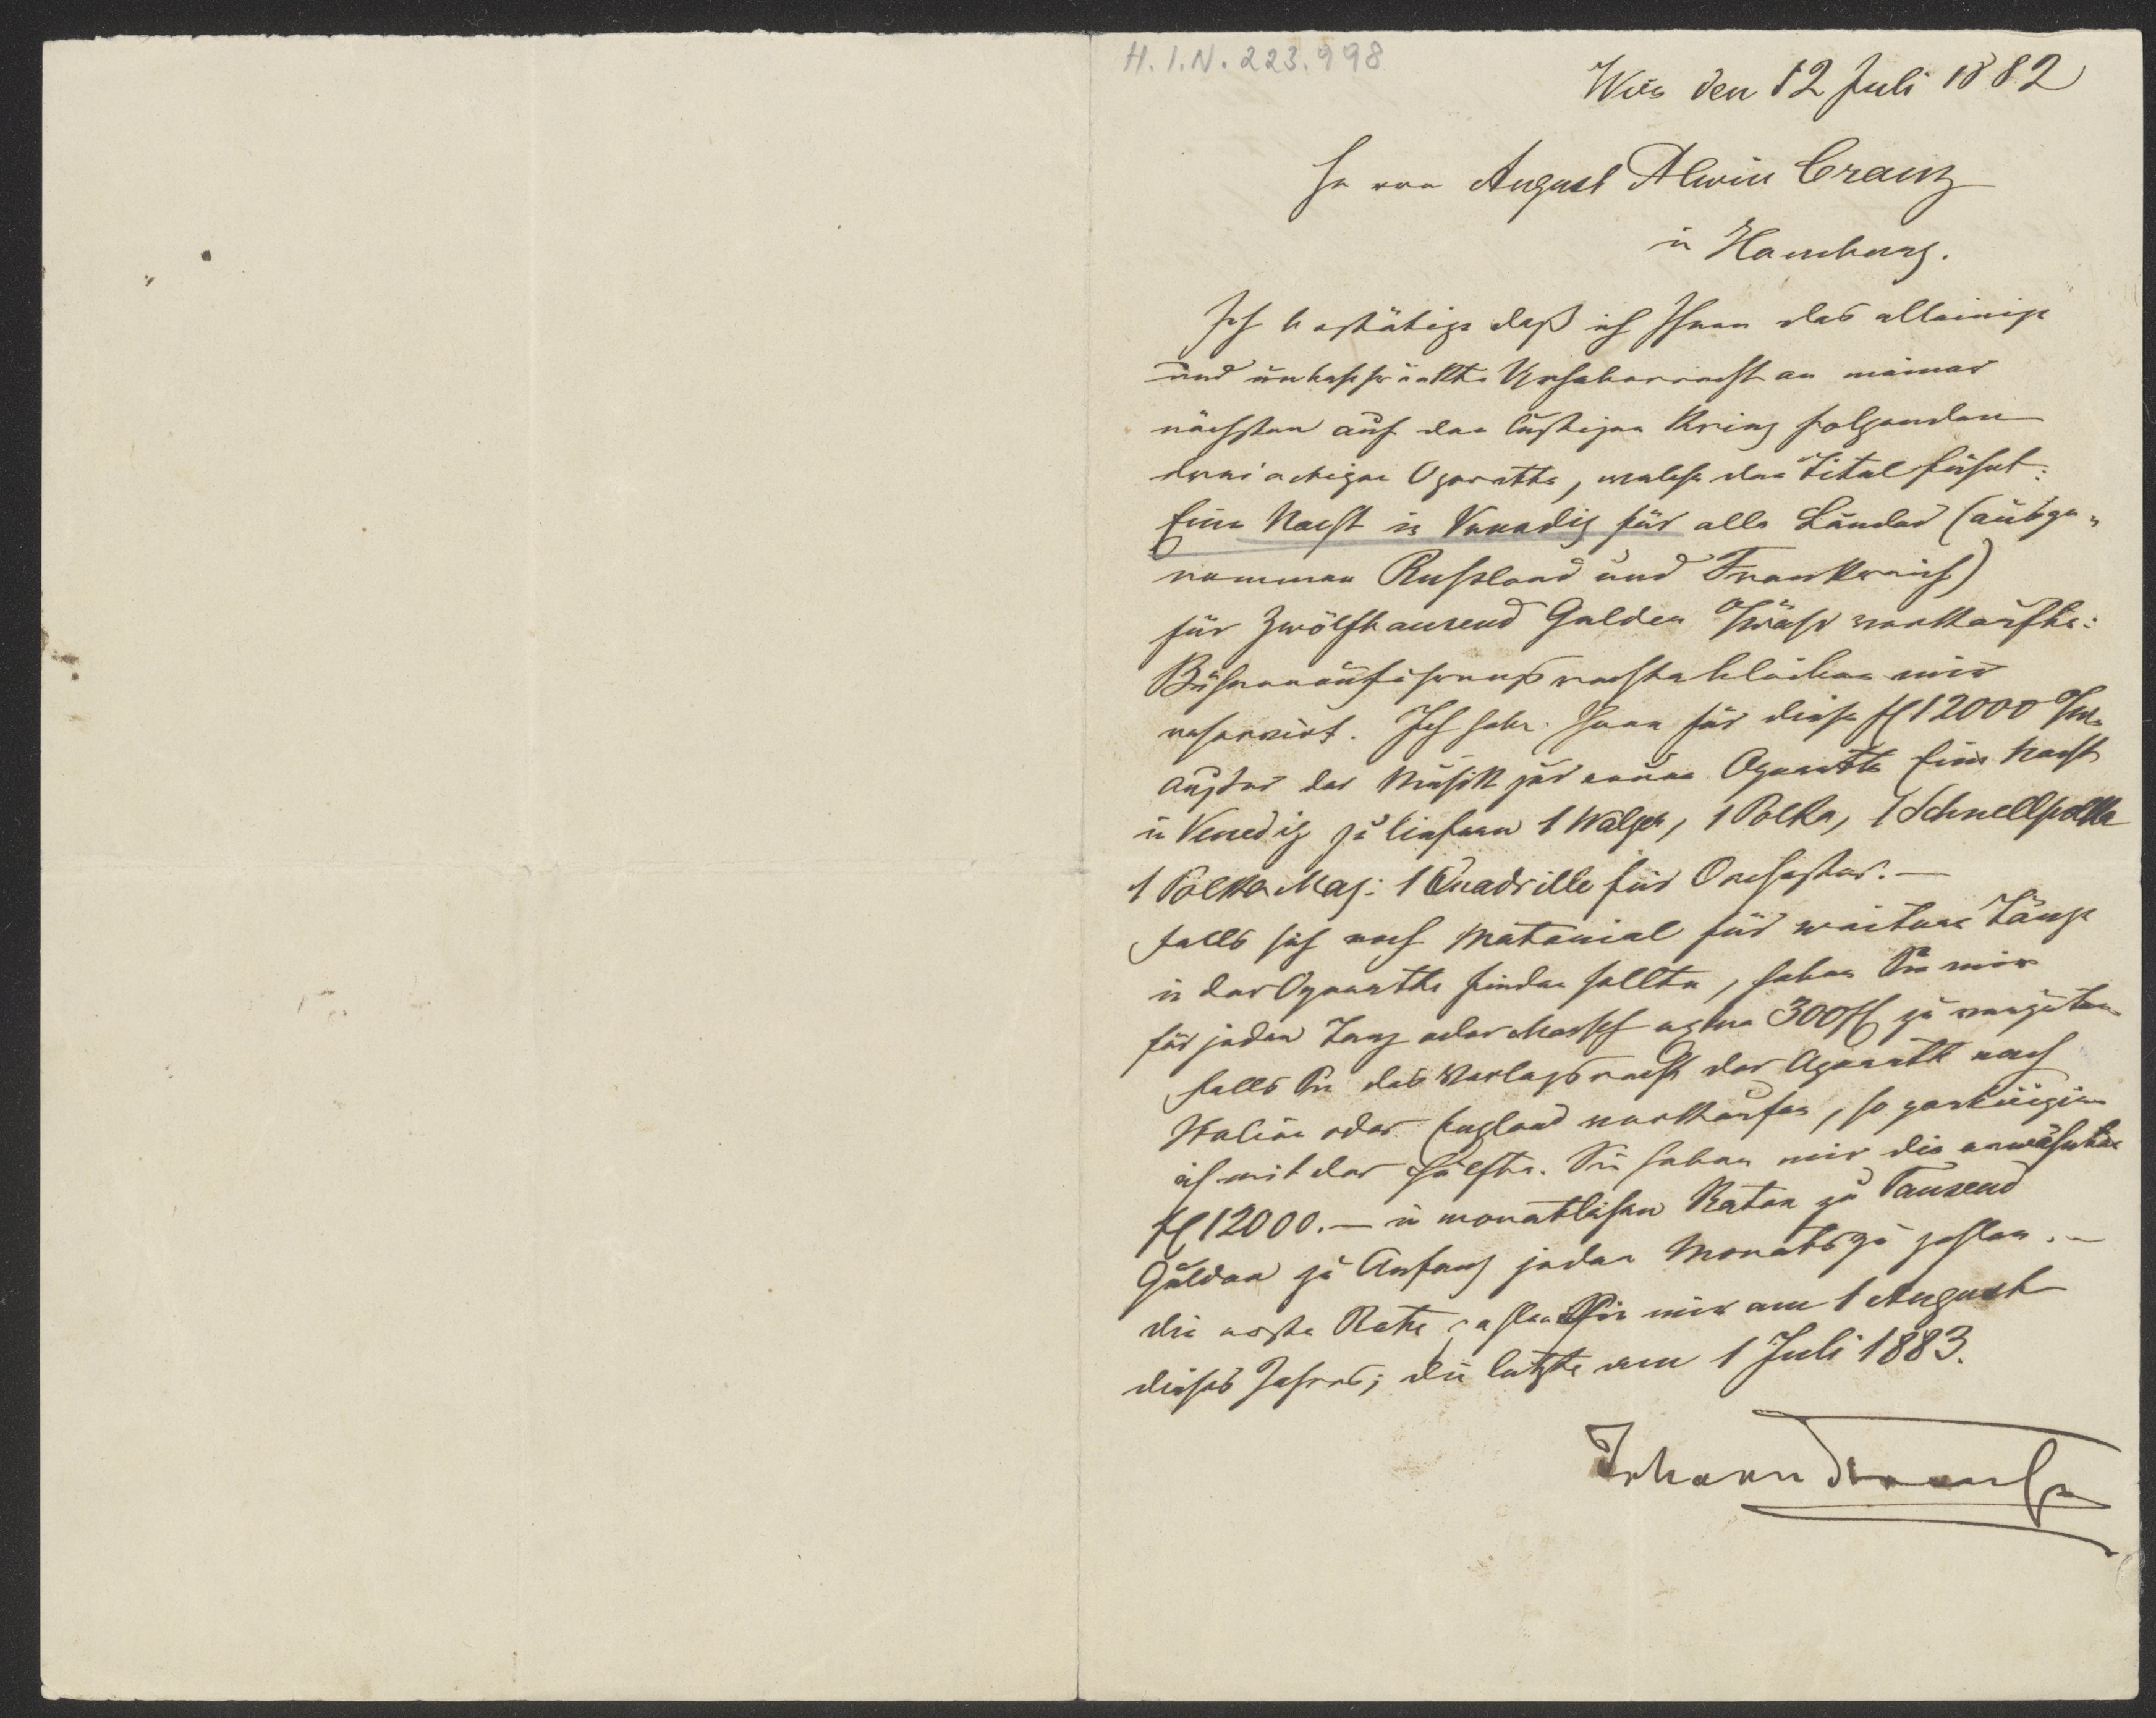 H.I.N. 223.998
Wien den 12 Juli 1882
Herrn August Alwin Cranz
in Hamburg.
Ich bestätige daß ich Ihnen das alleinige
und unbeschränkte Urheberrecht an meiner
nächsten auf den lustigen Krieg folgenden
dreiactigen Operette, welche den Titel führt:
Eine Nacht in Venedig für alle Länder (ausge-
nommen Russland und Frankreich)
für Zwölftausend Gulden verkaufte:
Bühnenaufführungsrechte bleiben mir
reservirt. Ich habe Ihnen für diese fl 12000
außer der Musik zur neuen Operette Eine Nacht
in Venedig zu liefern 1 Walzer, 1 Polka, 1 Schnellpolka
1 Polka Maz: 1 Quadrille für Orchester. —
Falls sich noch Material für weitere Tänze
in der Operette finden sollte, haben Sie mir
für jeden Tanz oder Marsch extra 300 fl zu vergüten
falls Sie das Verlagsrecht der Operette nach
Italien oder England verkaufen, so participire
ich mit der Hälfte. Sie haben mir die erwähnten
fl 12000. — in monatlichen Raten zu Tausend
Gulden zu Anfang jeden Monats zu zahlen. —
die erste Rate zahlen Sie mir am 1 August
dieses Jahres; die letzte am 1 Juli 1883.
Johann Strauss